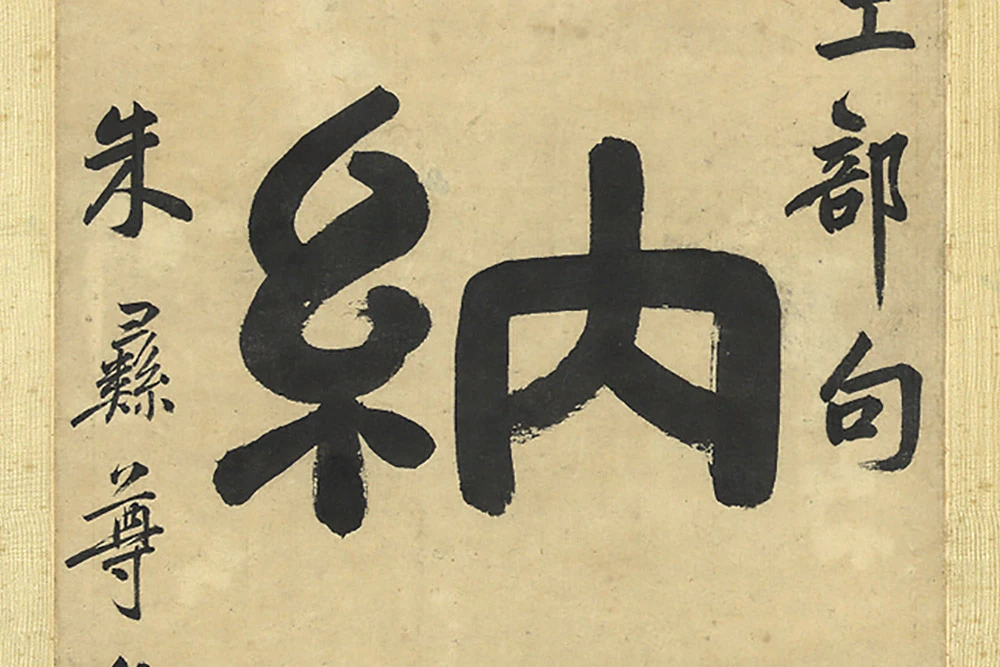 工部句
納
朱彝尊